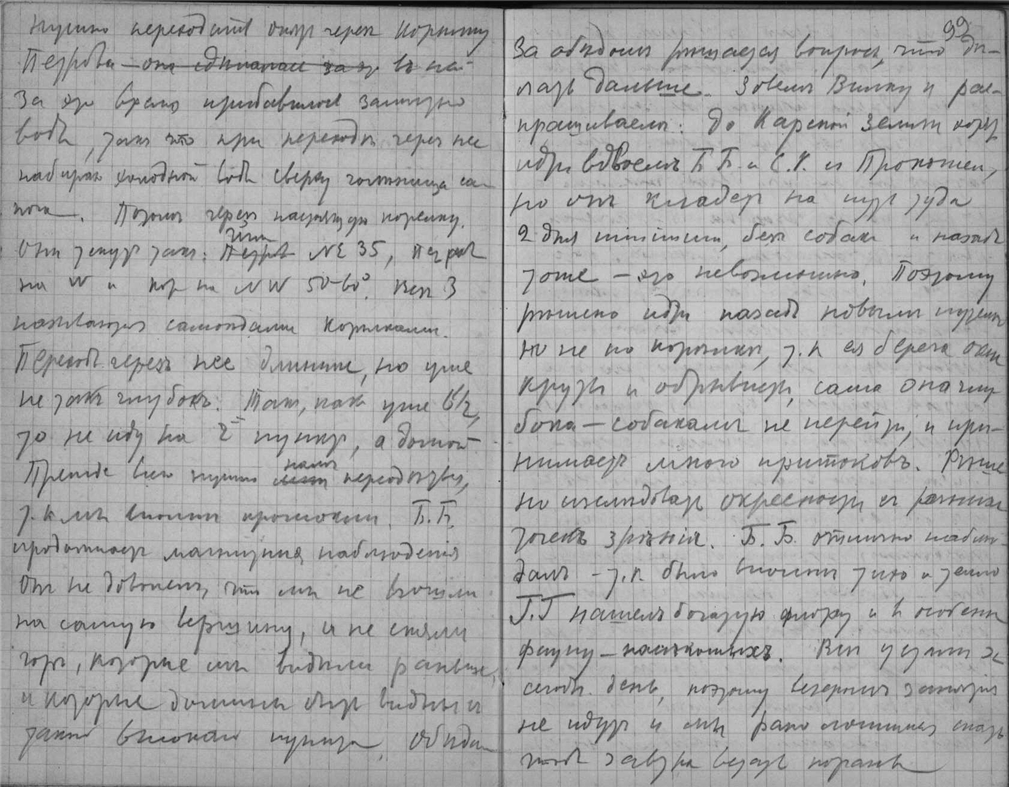 нужно переходить опять через Корыту
Петрова – она
За это время прибавилось заметно
воды, так что при переходе через нее
набираю холодной воды сверху голенища са-
пога. Потом через
Они текут так: NE 35, Петров
на W и на NW 50-60°. Все 3
называются самоедами Корытками.
Переход через нее длиннее, но уже
не так глубок. Так, как уже 6 ч,
то не иду на 2й пункт, а домой
Прежде всего нужно нам переодеться,
т.к мы вполне промокли. Б.Б.
продолжает магнитные наблюдения
Он не доволен, что мы не взошли
на самую вершину, и не сняли
горы, которые мы видели раньше,
и которые должны быть видны с
такого высокого пункта. Обедаем
92
За обедом решается вопрос, что де-
лать дальше. Зовем Вылку и рас-
прашиваем: До Карской Земли хотят
идти вдвоем Б.Б. и С.К. и Прокопием,
но он кладет на путь туда
2 дня minimum, без собак и назад
тоже – это невозможно. Поэтому
решено идти назад новым путем
но не по Корытке, т.к ея берега очень
круты и обрывисты, сама она глу-
бока – собакам не перейти, и при-
нимает много притоков. Реше-
но исследовать окресности с разных
точек зрения. Б.Б. отлично наблю-
дал – т.к. было вполне тихо и тепло
Г.Г нашел богатую флору и в особен
фауну – насекомых. Все устали за
сегодн. день, поэтому вечером занятия
не идут и мы рано ложимся спать
чтоб завтра встать пораньше